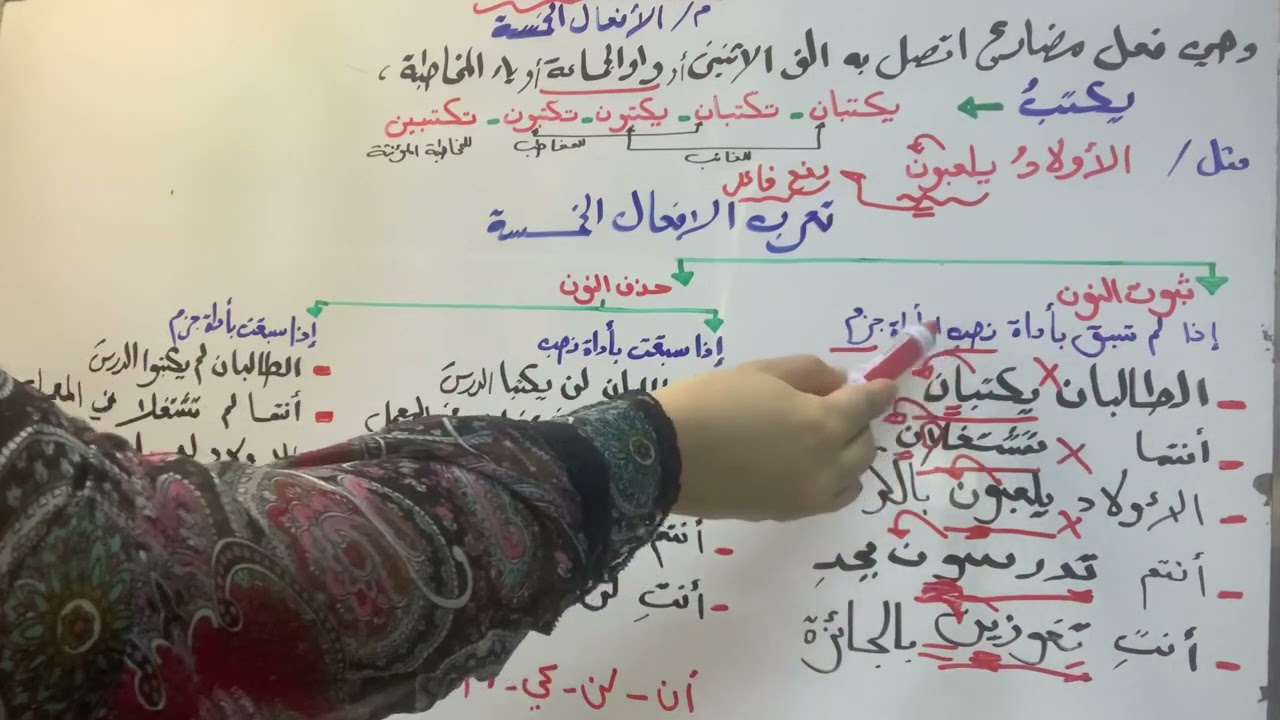 م/ الأفعال الخمسة
وهي فعل مضارع اتصل به الف الاثنين أو واو الجماعة أو ياء المخاطبة ،
يكتبُ ← يكتبان - تكتبان - يكتبون - تكتبون - تكتبين
للغائب للمخاطب للمخاطبة المؤنثة
مثل / الأولادُ يلعبون
يرفع فاعل
تعرب الافعال الخمسة
ثبوت النون
إذا لم تسبق بأداة نصب أداة جزم
- الطالبان يكتبان
- أنتما تشتغلان
- الأولاد يلعبون
- أنتم تدرسون بجدِ
- أنتِ تفوزين بالجائزة
حذف النون
إذا سبقت بأداة نصب
لن يكتبا الدرسَ
- أنتم
- أنتِ لن
أن - لن - كي -
إذا سبقت بأداة جزم
- الطالبان لم يكتبوا الدرسَ
- أنتما لم تشتغلا في